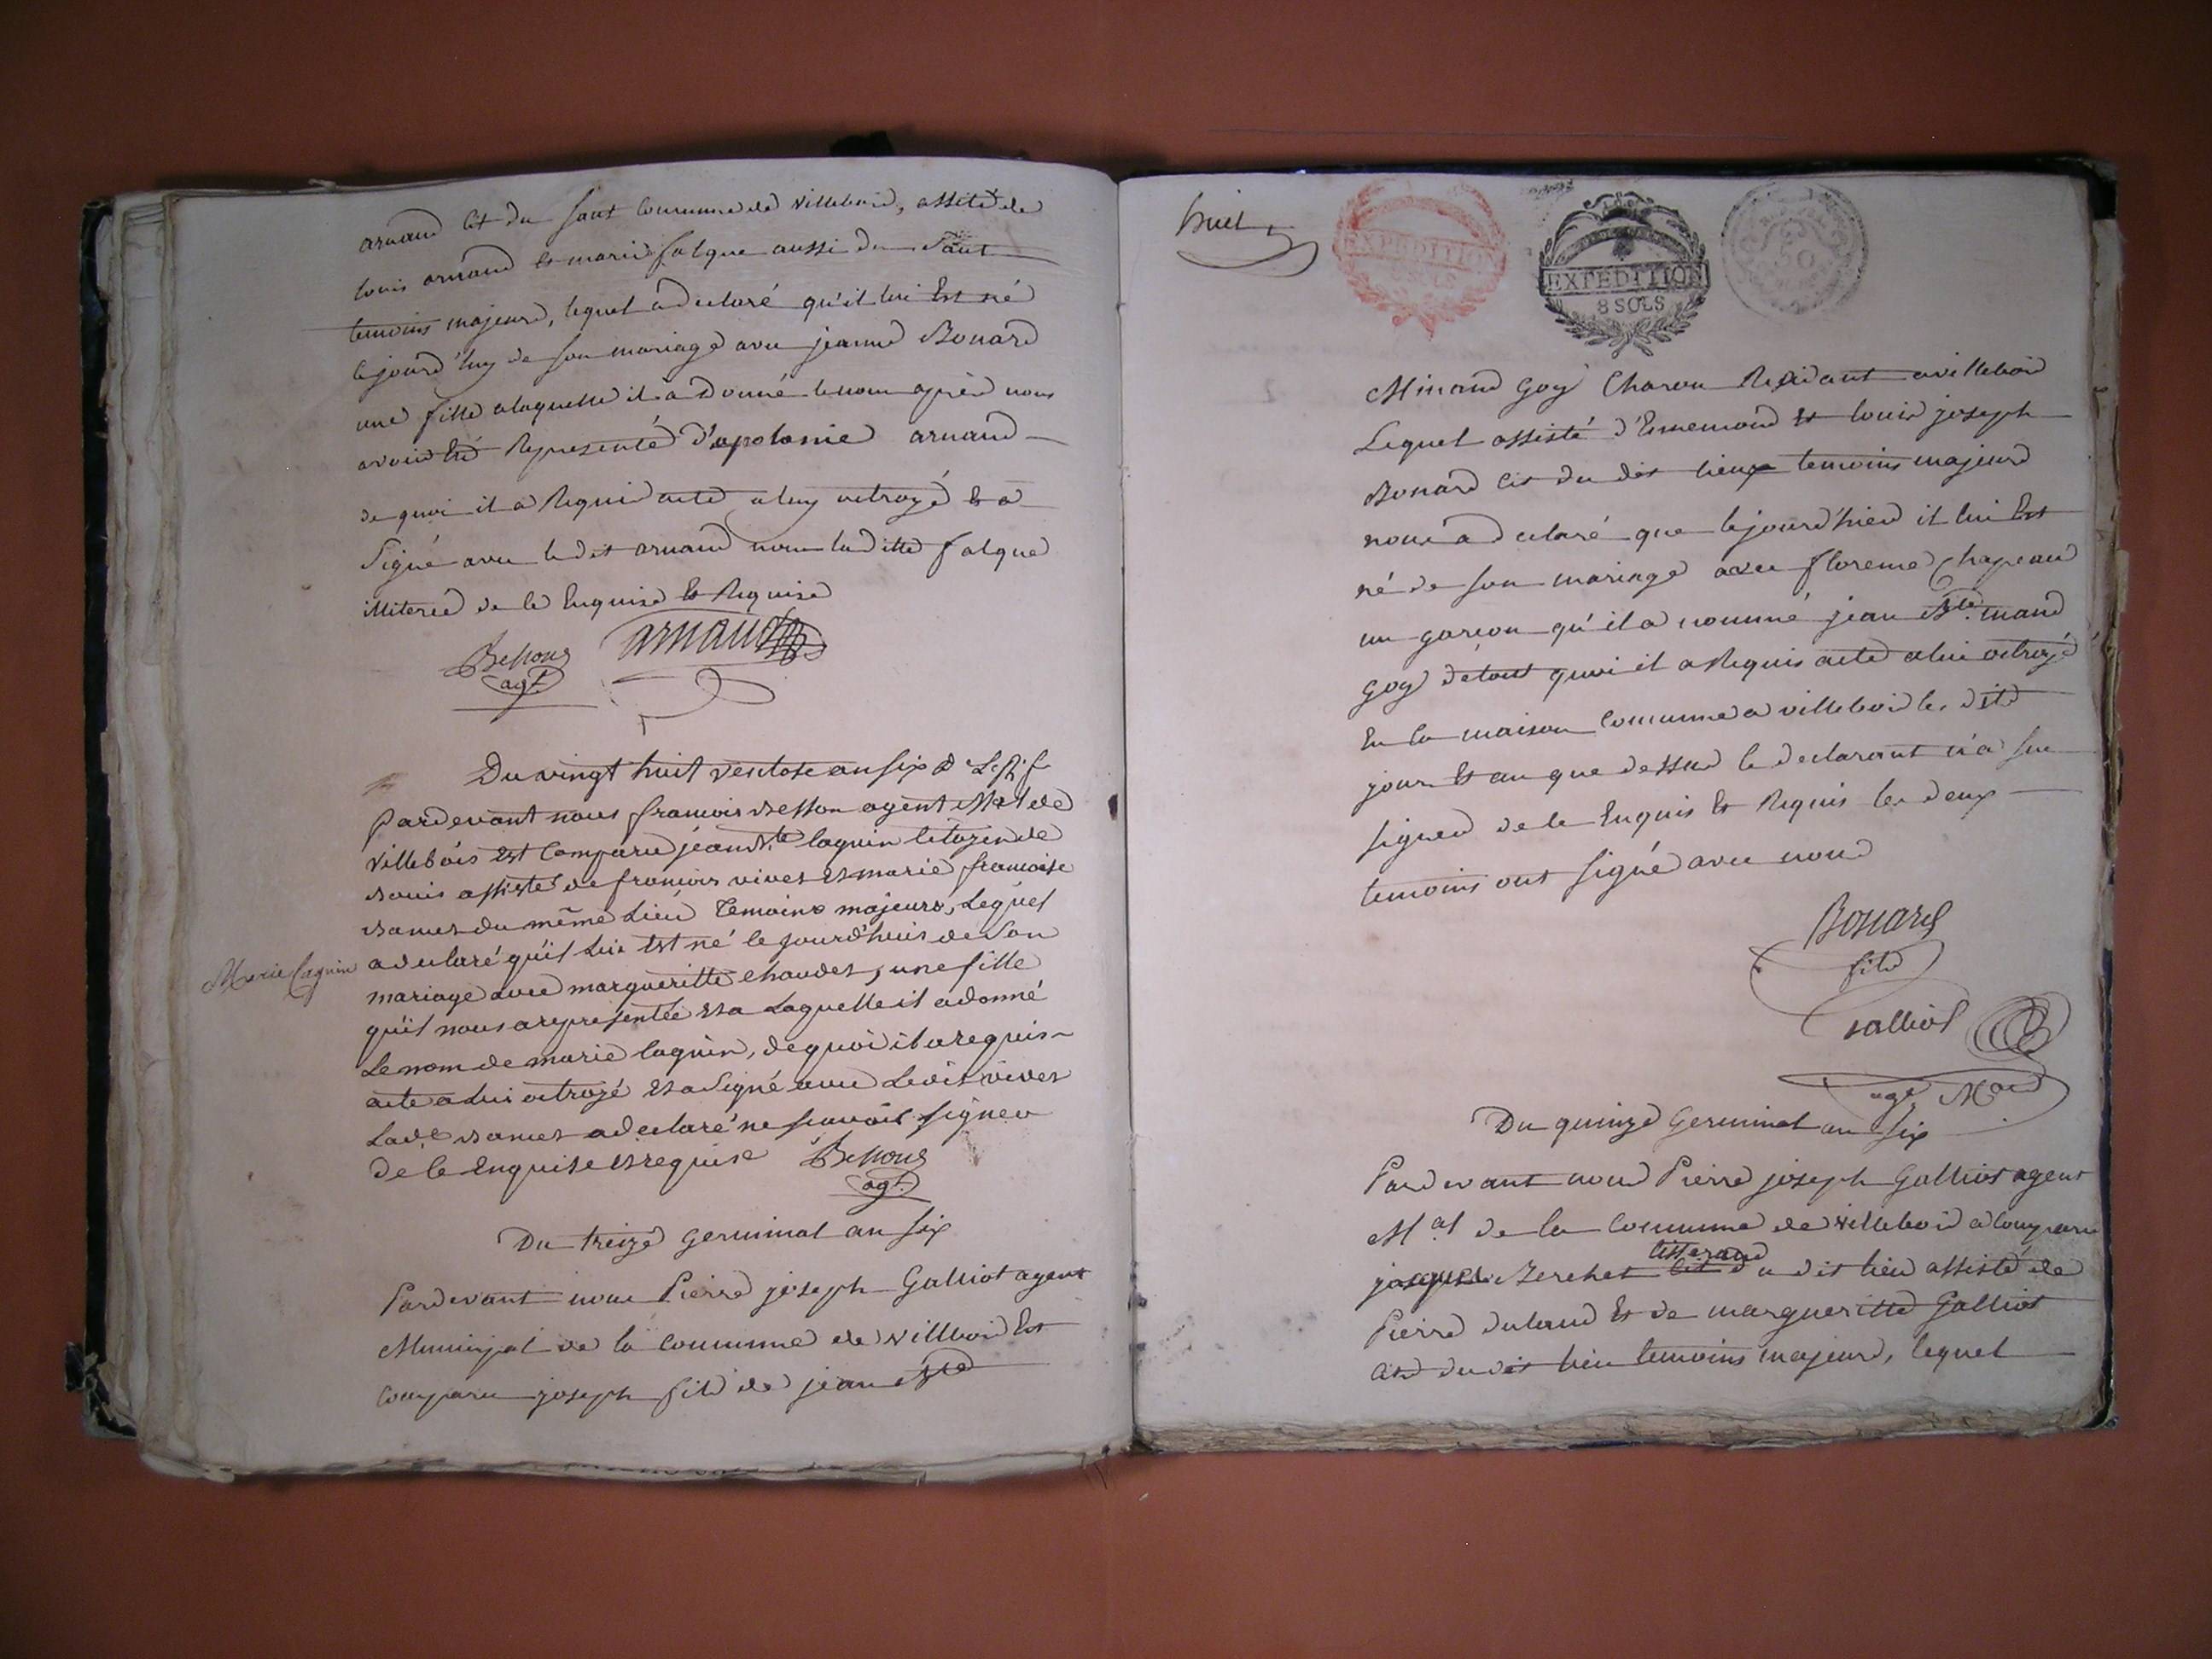 arnaud cit du saut Commune de villebois, assité de
louis arnaud et marie falque aussi du Saut
temoins majeurs, lequel a declaré qu'il lui Est né
cejourd'huy de son mariage avec jeanne Bonard
une fille a laquelle il a donné le nom après nous
avoir Eté Representé d'apolonie arnaud
de quoi il a Requis acte a luy octroyé et a
Signé avec le dit arnaud non la ditte falque
illiterée de ce Enquise et Requise
Besson arnaud
agt.
Du vingt huit ventose an six
pardevant nous francois Besson agent Mal de
villebois est Comparu jean Bte laguin Citoyen de
Bouis assisté de francois vivet et marie francoise
du même Lieu Temoins majeurs, Lequel
a declaré qu'il Lui est né le jourd'huis de Son
Marie Laguin
mariage avec margueritte chaudet, une fille
qu'il nous a representée et a Laquelle il a donné
Le nom de marie laguin, de quoi il a requis
acte a Lui octroyé et a Signé avec Ledit vivet
Lade a declaré ne scavoir signer
de ce Enquise et requise Besson
agt.
Du treize germinal an six
Pardevant nous Pierre joseph Galliot agent
Municipal de la Commune de villebois Est
Comparu joseph fils de jean Bte
huit
EXPEDITION
EXPEDITION
8 SOLS
50
Minand Goy Charon Residant a villebois
Lequel assisté d'Ennemond et louis joseph
Bonard cit du dit lieux temoins majeurs
nous a declaré que le jourd'hier il lui Est
né de son mariage avec florence Chapeau
un garcon qu'il a nommé jean Bte. minand
goy de tout quoi il a Requis acte a lui octroyé
En la maison Commune a villebois les dits
jour et an que dessus le declarant n'a su
signer de ce Enquis et Requis les deux
temoins ont signé avec nous
Bonard
fils
Galliot
agt Mal
Du quinze germinal an six
Pardevant nous Pierre joseph Galliot agent
Mal de la Commune de villebois a Comparu
tisserand
jacques Berchet cit du dit lieu assisté de
Pierre dulaud et de margueritte Galliot
cit du dit lieu temoins majeurs, lequel